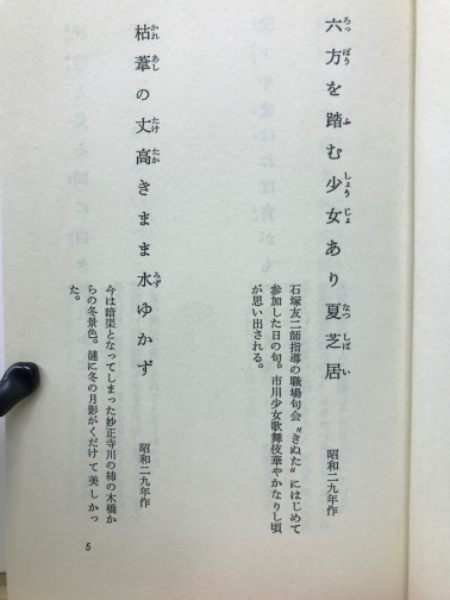 六方を踏む少女あり夏芝居
ろっぽう ふ しょうじょ なつしばい
昭和二九年作
石塚友二師指導の職場句会〝きぬた〟にはじめて
参加した日の句。市川少女歌舞伎華やかなりし頃
が思い出される。
枯葦の丈高きまま水ゆかず
かれあし たけたか みず
昭和二九年作
今は暗渠となってしまった妙正寺川の柿の木橋か
らの冬景色。漣に冬の月影がくだけて美しかっ
た。
5